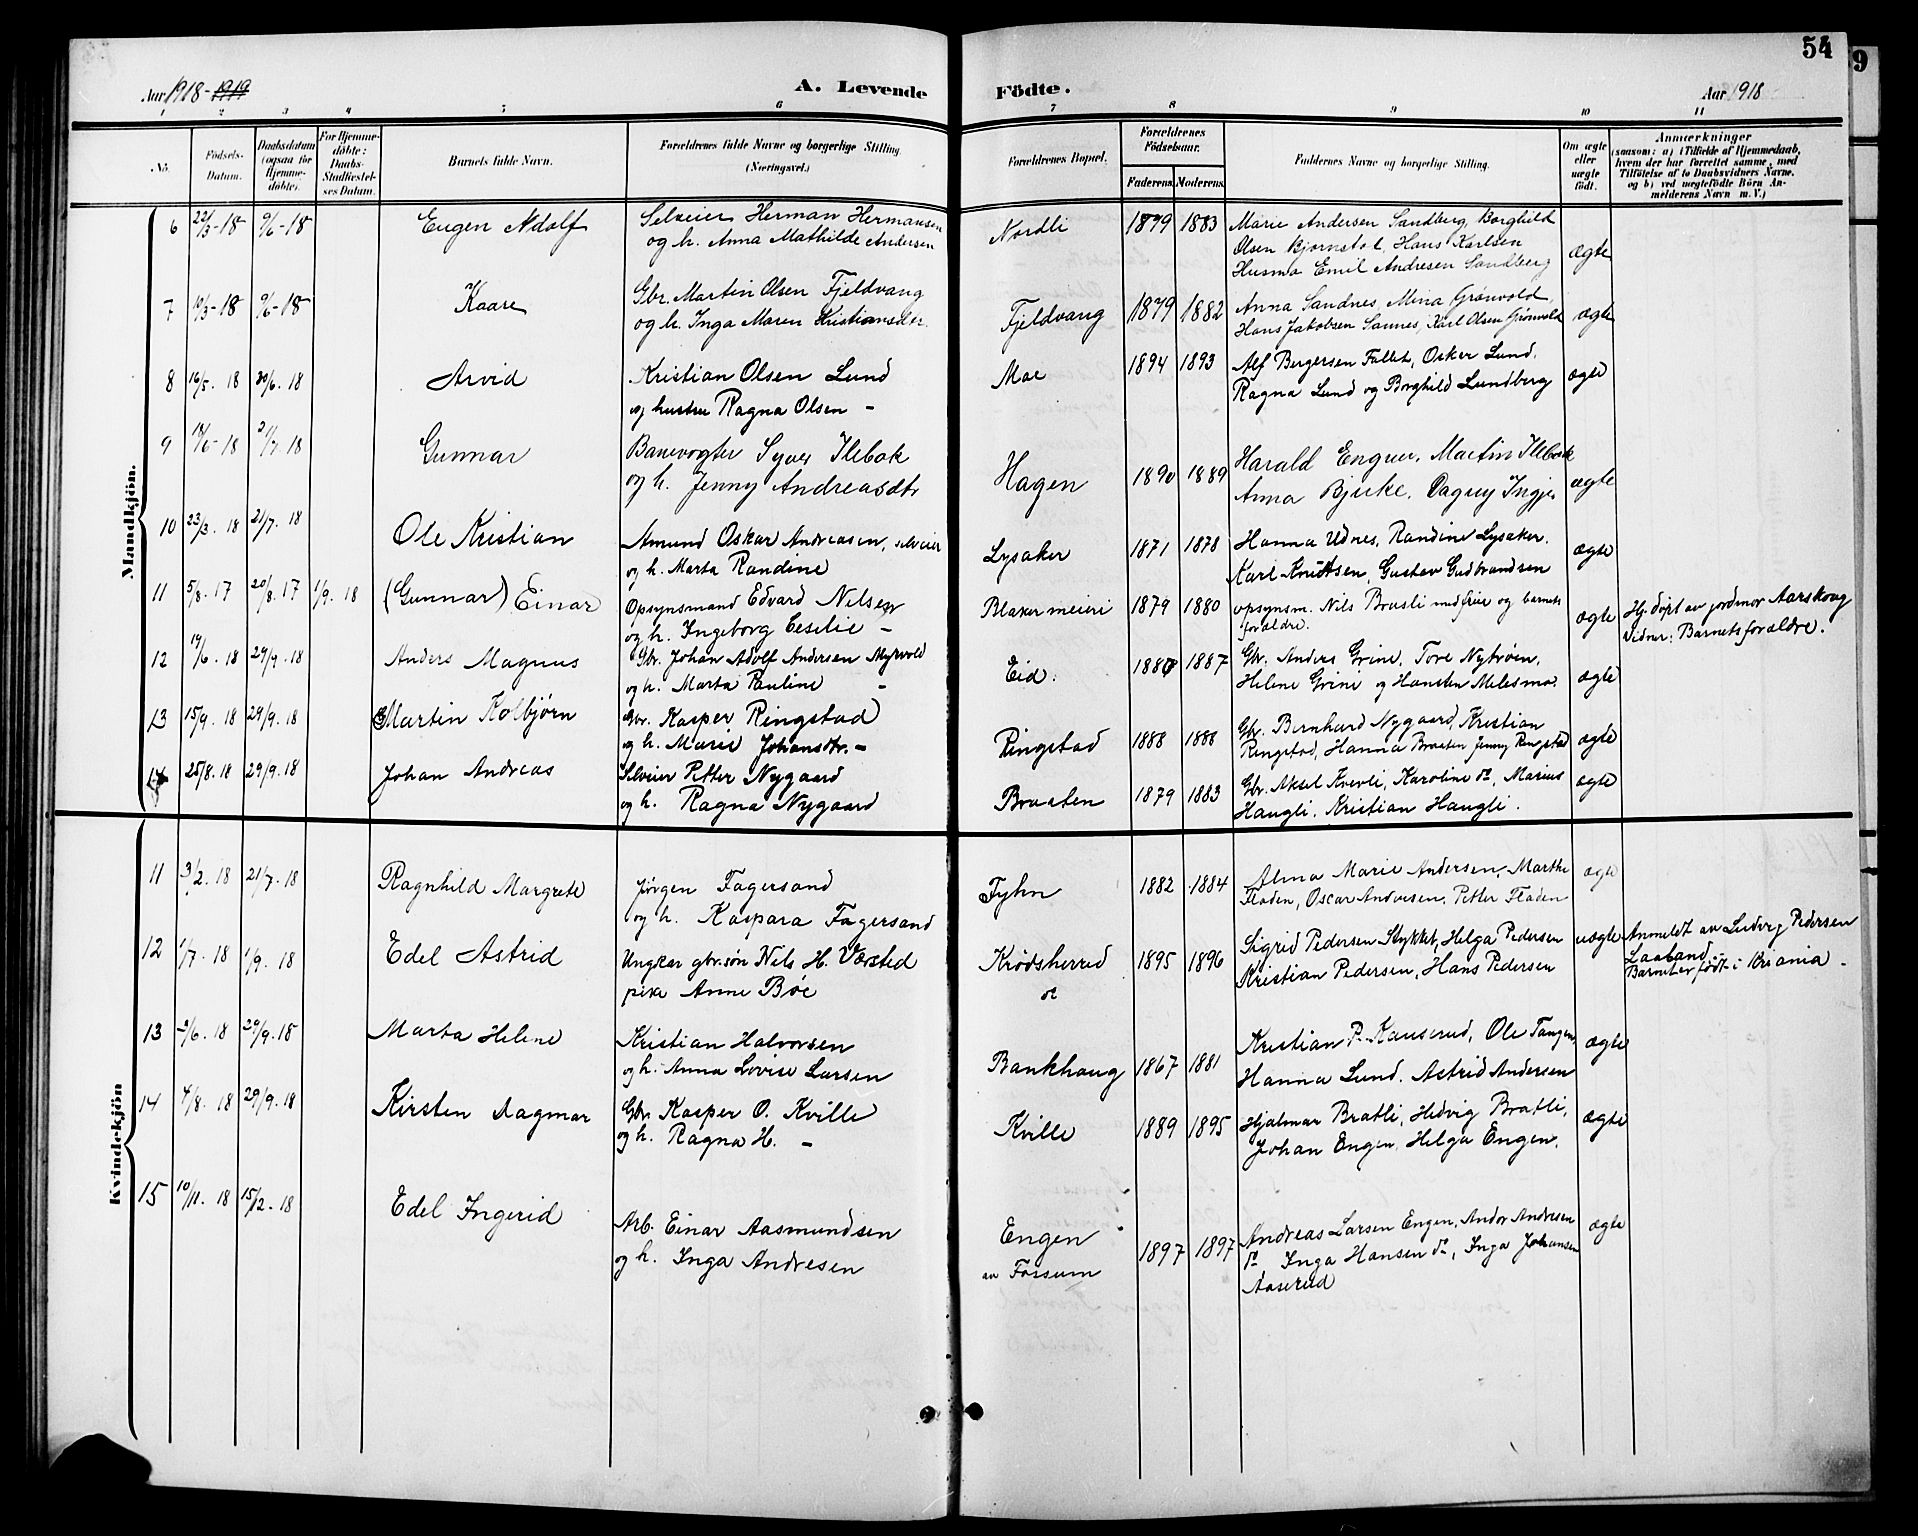 54
9
Aar 1918-1919
A. Levende
Födte.
Aar 1918
1 2 3 4 5 6 7 8 9 10 11
No.
Födsels-
Datum.
Daabsdatum
(ogsaa for
Hjemme-
döbte).
For Hjemme-
döbte:
Daabs-
Stadfæstel-
ses Datum.
Barnets fulde Navn.
Forældrenes fulde Navne og borgerlige Stilling
(Næringsvei.)
Forældrenes Bopæl.
Forældrenes
Födselsaar.
Faderens. Moderens.
Faddernes Navne og borgerlige Stilling.
Om ægte
eller
uægte
födt.
Anmærkninger
(saasom: a) i Tilfælde af Hjemmedaab,
hvem der har forrettet samme, med
Tilföielse af to Daabsvidners Navne,
og b) ved uægtefödte Börn An-
melderens Navn m. V.)
Mandkjön.
6 22/3-18 9/6-18 Eugen Adolf Selveier Herman Hermansen
og h. Anna Mathilde Andersen
Nordli 1879 1883 Marie Andersen Sandberg, Borghild
Olsen Bjørnstol, Hans Karlsen
Husmo Emil Andresen Sandberg
ægte
7 19/3-18 9/6-18 Kaare Gbr. Martin Olsen Fjeldvang
og h. Inga Maren Kristiansdtr.
Fjeldvang 1879 1882 Anna Sandnes, Mina Grønvold,
Hans Jakobsen Sannes, Karl Olsen Grønvold
ægte
8 16/5. 18 30/6. 18 Arvid Kristian Olsen Lund
og hustru Ragna Olsen -
Moe 1894 1893 Alf Bergersen Fallet, Osker Lund,
Ragna Lund og Borghild Lundberg
ægte
9 18 21/7. 18 Gunnar Banevogter Syver Ilebæk
og h. Jenny Andreasdtr
Hagen 1890 1889 Harald Enguer, Martin Ilebæk
Anna Bjerke, Dagny Ingjer
ægte
10 23/3. 18 21/7. 18 Ole Kristian Amund Oskar Andreasen, selveier
og h. Marta Randine
Lysaker 1871 1878 Hanna Udnes, Randine Lysaker,
Karl Knudtsen, Gustav Gudbrandsen
ægte
11 5/8. 17 20/8. 17 1/9. 18 (Gunnar) Einar Opsynsmand Edvard Nilsen
og h. Ingeborg Cesilie -
Blaker meieri 1879 1880 opsynsm. Nils Brusli med frue og barnets
forældre.
ægte Hj. døpt av jordmor Aarskoug
Vidner: Barnets forældre.
12 19/6. 18 29/9. 18 Anders Magnus Gbr. Johan Adolf Andersen Myrvold
og h. Marta Pauline -
Eid. 1880 1887 Gbr. Anders Grine, Tore Nybrøen,
Helene Grini og Hansten Melesmo.
ægte
13 15/9. 18 29/9. 18 Martin Kolbjørn Gbr. Kasper Ringstad
og h. Marie Johansdtr. -
Ringstad 1888 1888 Gbr. Bernhard Nygaard, Kristian
Ringstad, Hanna Braaten Jenny Ringstad
ægte
14 25/8. 18 29/9. 18 Johan Andreas Selveier Petter Nygaard
og h. Ragna Nygaard
Braaten 1879 1883 Gbr. Aksel Kverli, Karoline do, Marius
Haugli, Kristian Haugli.
ægte
Kvindekjön
11 3/2. 18 21/7. 18 Ragnhild Margrete Jørgen Fagersand
og h. Kaspara Fagersand
Fyhn 1882 1884 Alma Marie Andersen, Marthe
Fladen, Oscar Andresen, Petter Fladen
ægte
12 1/7. 18 1/9. 18 Edel Astrid Ungkar gbr.søn Nils H. Værsted
pike Anne Bøe
Krødsherred 1895 1896 Sigrid Pedersen Stykket, Helga Pedersen
Kristian Pedersen, Hans Pedersen
uægte Anmeldt av Ludvig Pedersen
Laaband,
Barnet er født i Kr.ania -
13 2/6. 18 29/9. 18 Marta Helene Kristian Halvorsen
og h. Anna Lovise Larsen
Bankhaug 1867 1881 Kristian P. Kauserud, Ole Tangen,
Hanna Lund. Astrid Andersen
ægte
14 4/8. 18 29/9. 18 Kirsten Dagmar Gbr Kasper O. Kville
og h. Ragna H. -
Kville 1889 1895 Hjalmar Bratli, Hedvig Bratli,
Johan Engen, Helga Engen.
ægte
15 10/11. 18 15/12. 18 Edel Ingerid Arb. Einar Aasmundsen
og h. Inga Andresen
Engen
av Fossum
1897 1897 Andreas Larsen Engen, Andor Andresen
do, Inga Hansen do, Inga Johansen
Aaserud
ægte